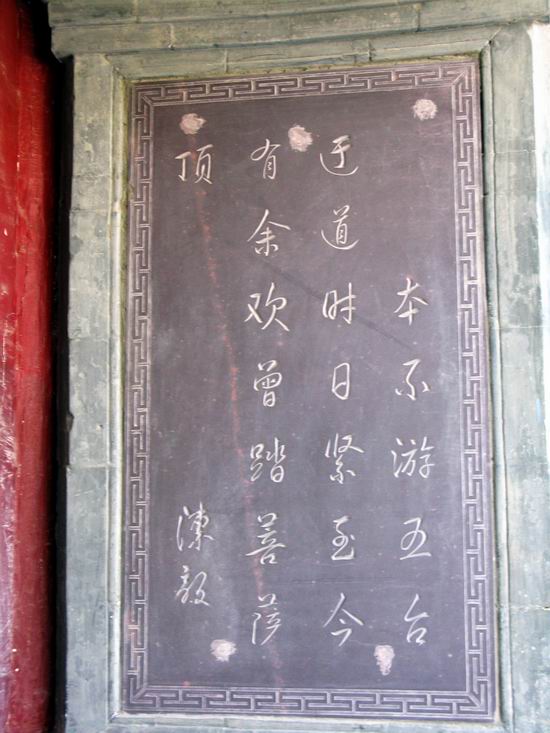 本不游五台
迂道时日紧至今
有余欢曾踏菩萨
顶